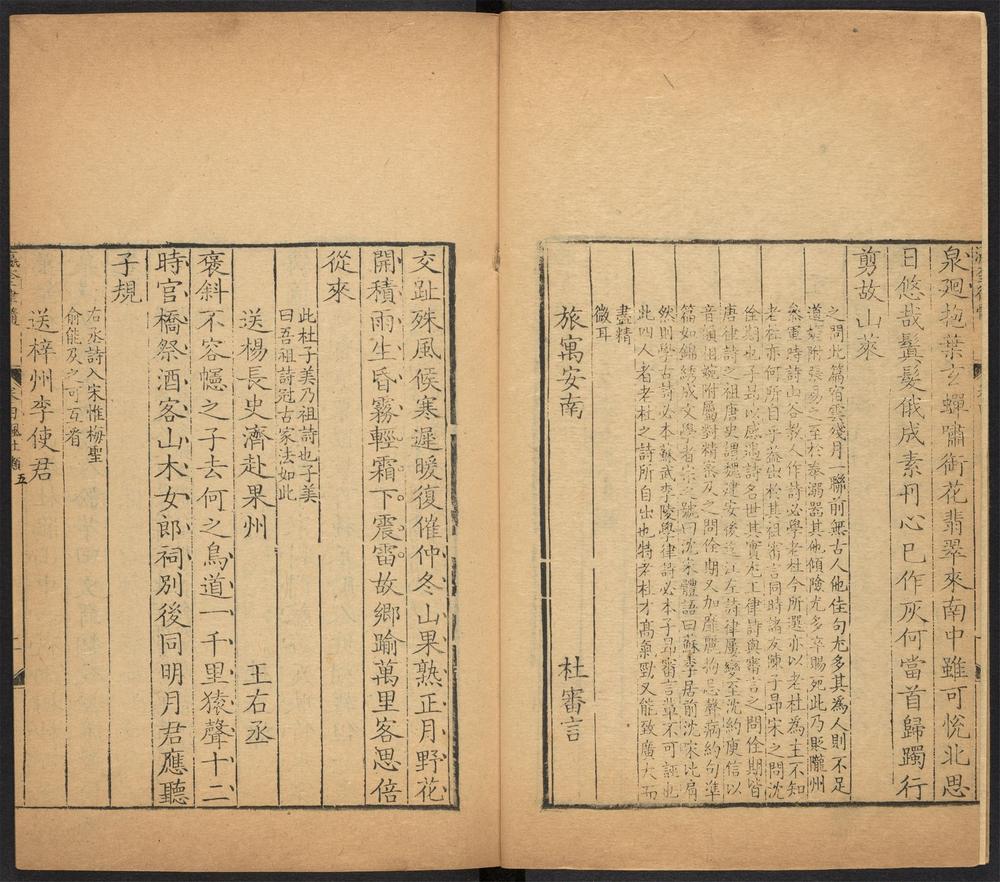 泉廻抱葉玄蟬嘯銜花翡翠來南中雖可悅北思
日悠哉鬒髮俄成素丹心已作灰何當首歸躅行
剪故山萊
之問此篇宿雲殘月一聯前無古人他佳句尤多其為人則不足
道媚附張易之至於奉溺器其他傾險尤多卒賜死此乃貶瀧州
參軍時詩山谷教人作詩必學老杜今所選亦以老杜為主不知
老杜亦何所自乎蓋出於其祖審言同時諸友陳子昂宋之問沈
佺期也子昂以感遇詩名世其實尤工律詩與審言之問佺期皆
唐律詩之祖唐史謂魏建安後迄江左詩律屢變至沈約庾信以
音韻相婉附屬對精密及之問佺期又加靡麗拘忌聲病約句準
篇如錦綉成文學者宗之號曰沈宋體語曰蘇李居前沈宋比肩
然則學古詩必本蘇武李陵學律詩必本子昂審言輩不可誣也
此四人者老杜之詩所自出也特老杜才高氣勁又能致廣大而
盡精
微耳
旅寓安南 杜審言
交趾殊風候寒遲暖復催仲冬山果熟正月野花
開積雨生昏霧輕霜下震雷故鄉踰萬里客思倍
從來
此杜子美乃祖詩也子美
曰吾祖詩冠古家法如此
送楊長史濟赴果州 王右丞
褒斜不容幰之子去何之鳥道一千里猿聲十二
時官橋祭酒客山木女郎祠別後同明月君應聽
子規
右丞詩入宋惟梅聖
俞能及之可互看
送梓州李使君
五